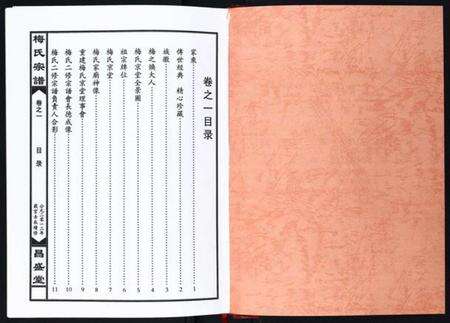 卷之一目录
家乘……1
傳世經典 精心珍藏……2
族徽……3
梅之摛大人……4
梅氏宗堂全景圖……5
祖宗牌位……6
梅氏宗堂……7
梅氏家廟神像……8
重建梅氏宗堂理事會……9
梅氏二修宗譜會長德成像……10
梅氏二修宗譜負責人合影……11
梅氏宗譜
卷之一
目录
昌盛堂